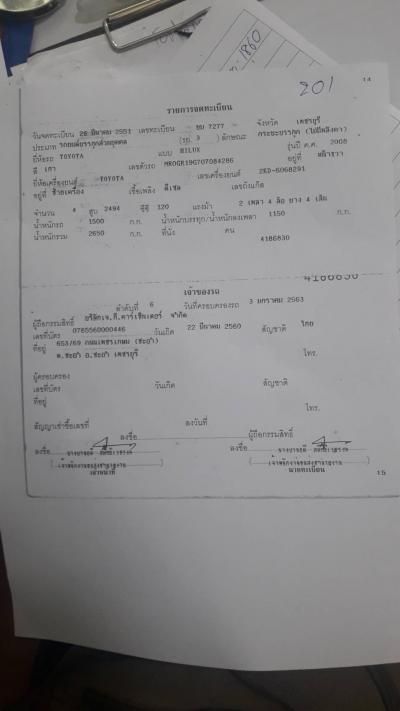 1860
201
14
รายการจดทะเบียน
วันจดทะเบียน 26 มีนาคม 2551 เลขทะเบียน บบ 7277 จังหวัด เพชรบุรี
ประเภท รถยนต์บรรทุกส่วนบุคคล (รย. 3 ) ลักษณะ กระบะบรรทุก (ไม่มีหลังคา)
ยี่ห้อรถ TOYOTA แบบ HILUX รุ่นปี ค.ศ. 2008
สี เทา เลขตัวรถ MR0GR19G707084286 อยู่ที่ หน้าขวา
ยี่ห้อเครื่องยนต์ TOYOTA เลขเครื่องยนต์ 2KD-6068291
อยู่ที่ ซ้ายเครื่อง เชื้อเพลิง ดีเซล เลขถังแก๊ส
จำนวน 4 สูบ 2494 ซีซี 120 แรงม้า 2 เพลา 4 ล้อ ยาง 4 เส้น
น้ำหนักรถ 1500 ก.ก. น้ำหนักบรรทุก/น้ำหนักลงเพลา 1150 ก.ก.
น้ำหนักรวม 2650 ก.ก. ที่นั่ง คน
4186830
4186830
เจ้าของรถ
ลำดับที่ 6 วันที่ครอบครองรถ 3 มกราคม 2563
ผู้ถือกรรมสิทธิ์ บริษัทเจ.ที.คาร์เซ็นเตอร์ จำกัด
เลขที่บัตร 0765560000446 วันเกิด 22 มีนาคม 2560 สัญชาติ ไทย
ที่อยู่ 653/69 ถนนเพชรเกษม (ชะอำ)
ต.ชะอำ อ.ชะอำ เพชรบุรี โทร.
ผู้ครอบครอง
เลขที่บัตร วันเกิด สัญชาติ
ที่อยู่
โทร.
สัญญาเช่าซื้อเลขที่ ลงวันที่
ลงชื่อ ผู้ถือกรรมสิทธิ์
ลงชื่อ ลงชื่อ
เจ้าหน้าที่ นายทะเบียน
15